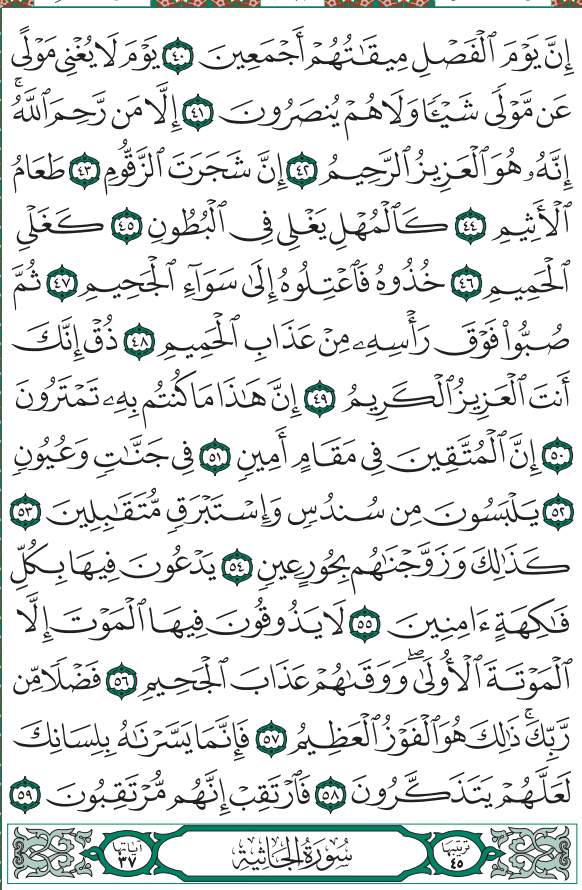 إِنَّ يَوْمَ ٱلْفَصْلِ مِيقَـٰتُهُمْ أَجْمَعِينَ ٤٠ يَوْمَ لَا يُغْنِى مَوْلًى
عَن مَّوْلًى شَيْـًٔا وَلَا هُمْ يُنصَرُونَ ٤١ إِلَّا مَن رَّحِمَ ٱللَّهُ ۚ
إِنَّهُۥ هُوَ ٱلْعَزِيزُ ٱلرَّحِيمُ ٤٢ إِنَّ شَجَرَتَ ٱلزَّقُّومِ ٤٣ طَعَامُ
ٱلْأَثِيمِ ٤٤ كَٱلْمُهْلِ يَغْلِى فِى ٱلْبُطُونِ ٤٥ كَغَلْىِ
ٱلْحَمِيمِ ٤٦ خُذُوهُ فَٱعْتِلُوهُ إِلَىٰ سَوَآءِ ٱلْجَحِيمِ ٤٧ ثُمَّ
صُبُّوا۟ فَوْقَ رَأْسِهِۦ مِنْ عَذَابِ ٱلْحَمِيمِ ٤٨ ذُقْ إِنَّكَ
أَنتَ ٱلْعَزِيزُ ٱلْكَرِيمُ ٤٩ إِنَّ هَـٰذَا مَا كُنتُم بِهِۦ تَمْتَرُونَ
٥٠ إِنَّ ٱلْمُتَّقِينَ فِى مَقَامٍ أَمِينٍ ٥١ فِى جَنَّـٰتٍ وَعُيُونٍ
٥٢ يَلْبَسُونَ مِن سُندُسٍ وَإِسْتَبْرَقٍ مُّتَقَـٰبِلِينَ ٥٣
كَذَٰلِكَ وَزَوَّجْنَـٰهُم بِحُورٍ عِينٍ ٥٤ يَدْعُونَ فِيهَا بِكُلِّ
فَـٰكِهَةٍ ءَامِنِينَ ٥٥ لَا يَذُوقُونَ فِيهَا ٱلْمَوْتَ إِلَّا
ٱلْمَوْتَةَ ٱلْأُولَىٰ ۖ وَوَقَىٰهُمْ عَذَابَ ٱلْجَحِيمِ ٥٦ فَضْلًا مِّن
رَّبِّكَ ۚ ذَٰلِكَ هُوَ ٱلْفَوْزُ ٱلْعَظِيمُ ٥٧ فَإِنَّمَا يَسَّرْنَـٰهُ بِلِسَانِكَ
لَعَلَّهُمْ يَتَذَكَّرُونَ ٥٨ فَٱرْتَقِبْ إِنَّهُم مُّرْتَقِبُونَ ٥٩
ترتيبها ٤٥ سُورَةُ الجَاثِيَةِ آياتها ٣٧